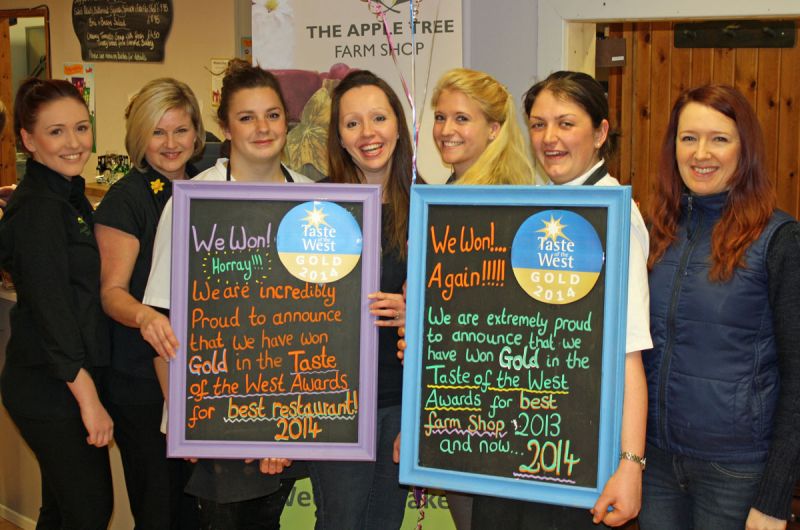 THE APPLE TREE
FARM SHOP
We Won!
Horray!!!
We are incredibly
Proud to announce
that we have won
Gold in the Taste
of the West Awards
for best restaurant!
2014
Taste
of the
West
GOLD
2014
We Won!...
Again!!!!!
We are extremely proud
to announce that we
have won Gold in the
Taste of the West
Awards for best
farm Shop 2013
and now... 2014
Taste
of the
West
GOLD
2014